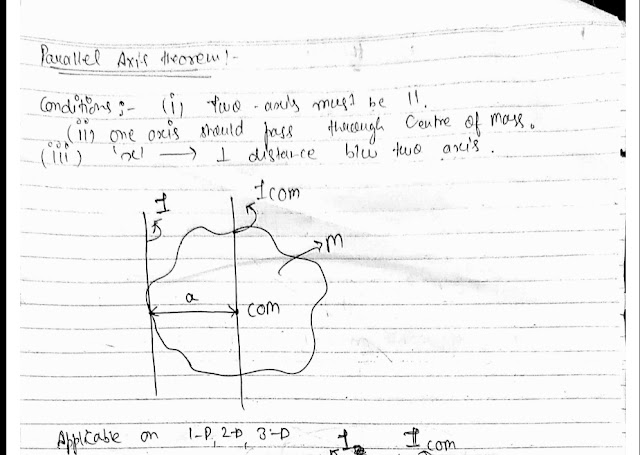 Parallel Axis theorem:-
Conditions:- (i) Two - axis must be ||.
(ii) one axis should pass through Centre of mass.
(iii) 'x' → ⊥ distance b/w two axis.
I
Icom
m
a
com
Applicable on 1-D, 2-D, 3-D I Icom